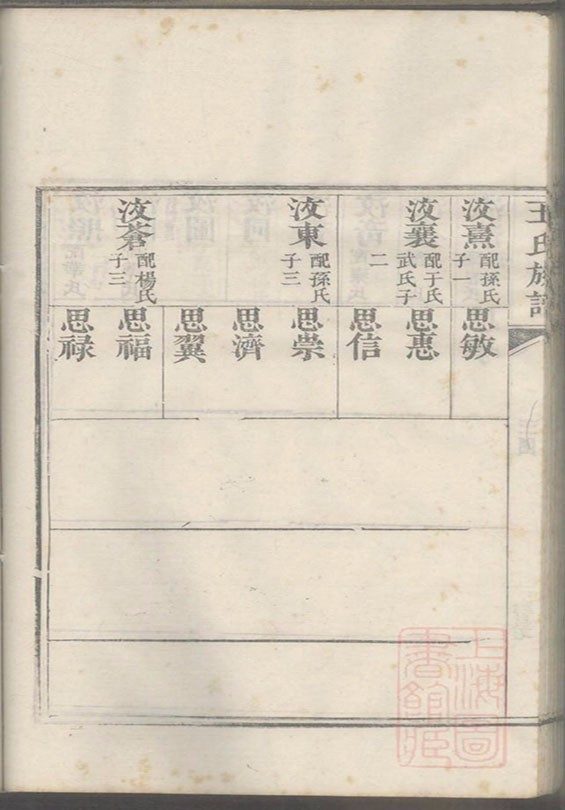 王氏族譜
汝熹 配孫氏
子一
汝襄 配于氏
武氏子
二
汝東 配孫氏
子三
汝蒼 配楊氏
子三
思敏
思惠
思信
思崇
思濟
思翼
思福
思禄
上海圖
書館藏